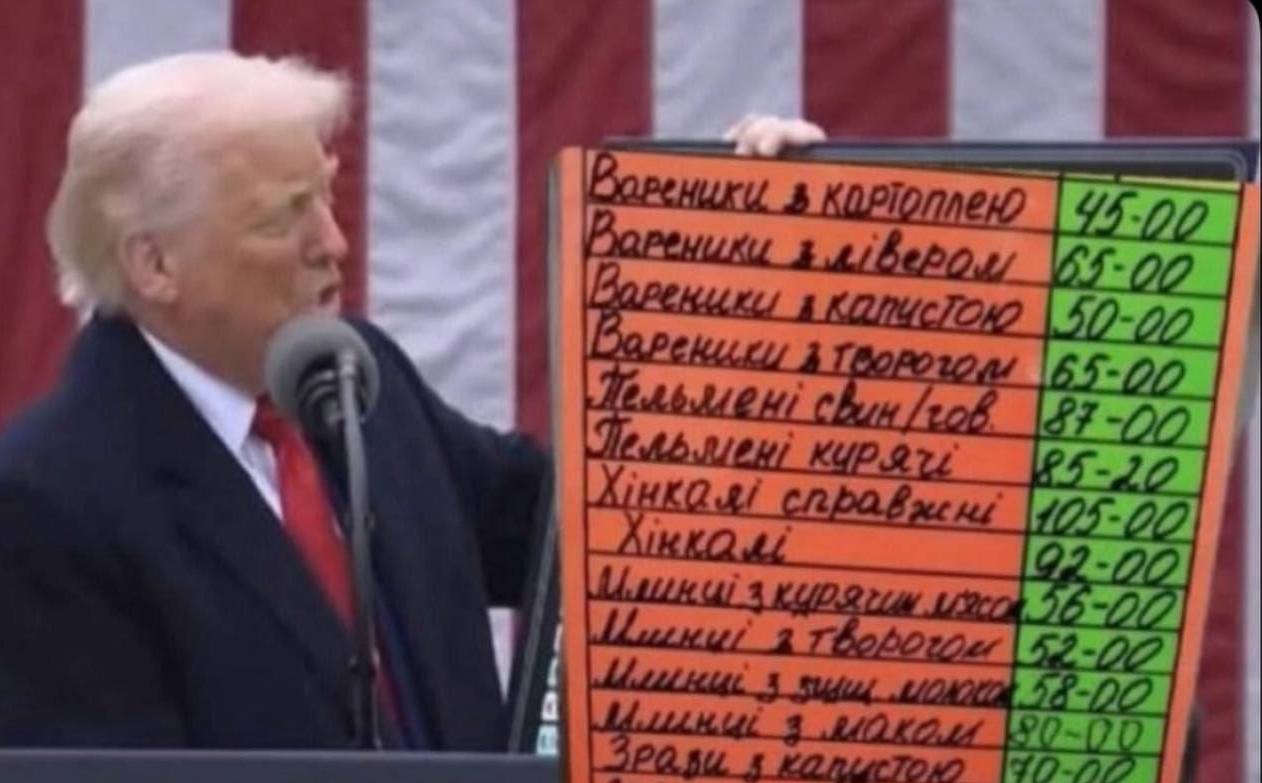 Вареники з картоплею 45-00
Вареники з лівером 65-00
Вареники з капустою 50-00
Вареники з творогом 65-00
Пельмені свин/гов. 87-00
Пельмені курячі 85-20
Хінкалі справжні 105-00
Хінкалі 92-00
Млинці з курячим м'ясом 56-00
Млинці з творогом 52-00
Млинці з згущ молоком 58-00
Млинці з маком 80-00
Зрази з капустою 70-00